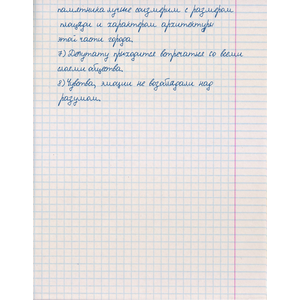 памятника лучше соизмерим с размером
площади и характером архитектуры
этой части города.
7) Депутату приходится встречаться со всеми
слоями общества.
8) Чувства, эмоции не возобладали над
разумом.